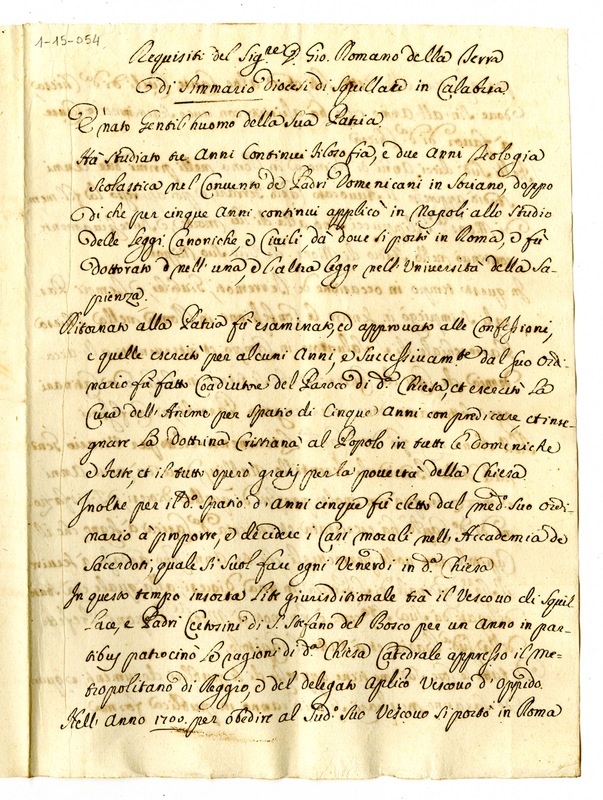 1-15-054
Requisiti del Sig.re D. Gio. Romano della Terra
di Simmario Diocesi di Squillace in Calabria
È nato Gentil'huomo della sua Patria.
Hà studiato tre Anni Continui Filosofia, e due Anni Teologia
Scolastica nel Convento de Padri Domenicani in Soriano, doppo
di che per cinque Anni continui applicò in Napoli allo Studio
delle Leggi Canoniche, e Civili, dà dove si portò in Roma, e fù
dottorato nell'una, e l'altra legge nell'Università della Sa-
pienza.
Ritornato alla Patria fù esaminato, ed approvato alle Confessioni,
e quelle esercitò per alcuni Anni, e Successivam.te dal suo Ordi-
nario fù fatto Coadiutore del Paroco di d.a Chiesa, et esercitò La
Cura dell'Anime per spatio di Cinque Anni con predicare, et inse-
gnare La Dottrina Cristiana al Popolo in tutte le Domeniche
e Feste, et il tutto operò gratis per la povertà della Chiesa.
Inoltre per il d.o spatio d'Anni cinque fù eletto dal med.o suo Ordi-
nario à proporre, e decidere i Casi morali nell'Accademia de
Sacerdoti, quale si suol fare ogni Venerdì in d.a Chiesa
In questo tempo insorta Lite giurisditionale trà il Vescovo di Squil
Lace, e Padri Certosini di S. Stefano del Bosco per un Anno in par-
tibus patrocinò Le ragioni di d.a Chiesa Catedrale appresso il Me-
tropolitano di Reggio, e del delegato Aplico Vescovo d'Oppido.
Nell'Anno 1700. per obedire al Sud.o Suo Vescovo si portò in Roma